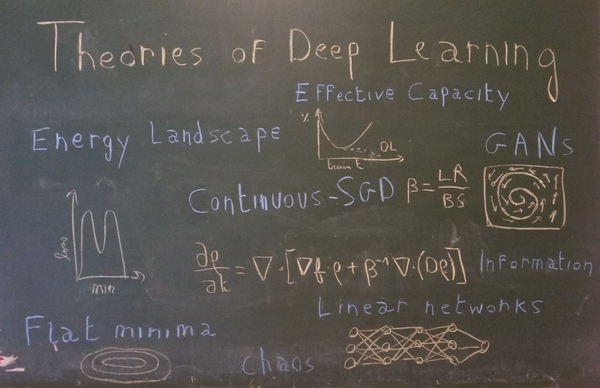 Theories of Deep Learning
Effective Capacity
Energy Landscape
%
DL
train t
GANs
Continuous-SGD β = LR/BS
loss
min
∂ρ/∂t = ∇·[∇f·ρ + β⁻¹∇·(Dρ)]
Information
Linear networks
Flat minima
chaos